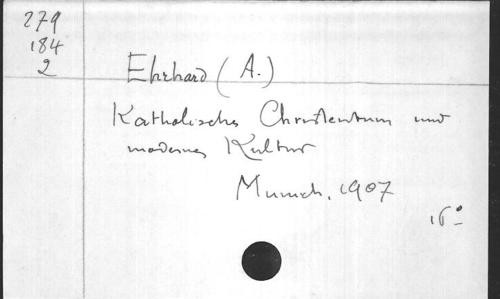 279
184
2
Ehrhard (A.)
Katholisches Christentum und
modernes Kultur
Munich, 1907
16°